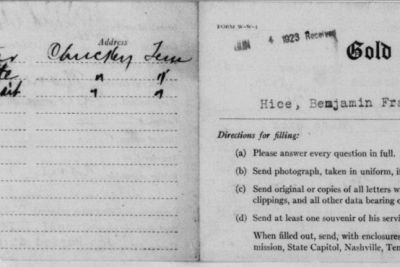 Address
Chuckey Tenn
" "
" "
FORM W-W-1
JUN 4 1923 Received
Gold
Hice, Benjamin Fra
Directions for filling:
(a) Please answer every question in full.
(b) Send photograph, taken in uniform, i
(c) Send original or copies of all letters w
clippings, and all other data bearing o
(d) Send at least one souvenir of his servi
When filled out, send, with enclosures
mission, State Capitol, Nashville, Ten